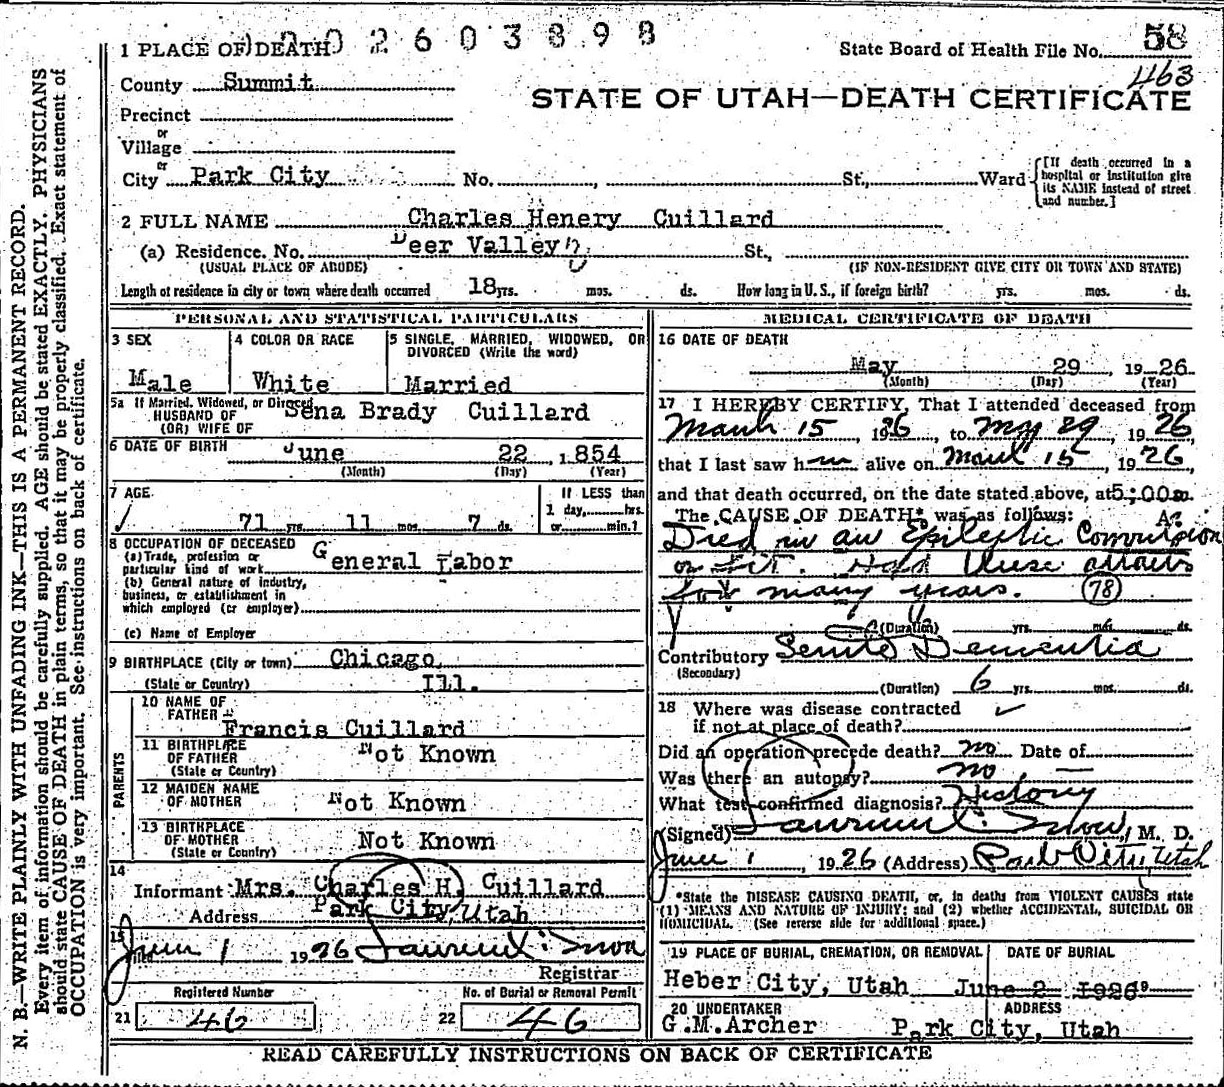 2603898
1 PLACE OF DEATH
State Board of Health File No. 58
463
County Summit
STATE OF UTAH—DEATH CERTIFICATE
Precinct
or
Village
or
City Park City No. , St., Ward
[If death occurred in a
hospital or institution give
its NAME instead of street
and number.]
2 FULL NAME Charles Henery Cuillard
(a) Residence. No. Deer Valley St.,
(USUAL PLACE OF ABODE) (IF NON-RESIDENT GIVE CITY OR TOWN AND STATE)
Length of residence in city or town where death occurred 18 yrs. mos. ds. How long in U. S., if foreign birth? yrs. mos. ds.
PERSONAL AND STATISTICAL PARTICULARS
3 SEX 4 COLOR OR RACE 5 SINGLE, MARRIED, WIDOWED, OR
DIVORCED (Write the word)
Male White Married
5a If Married, Widowed, or Divorced
HUSBAND OF Sena Brady Cuillard
(OR) WIFE OF
6 DATE OF BIRTH June 22, 1854
(Month) (Day) (Year)
7 AGE If LESS than
1 day, hrs.
71 yrs. 11 mos. 7 ds. or min.?
8 OCCUPATION OF DECEASED
(a) Trade, profession or
particular kind of work General Labor
(b) General nature of industry,
business, or establishment in
which employed (or employer)
(c) Name of Employer
9 BIRTHPLACE (City or town) Chicago,
(State or Country) Ill.
PARENTS
10 NAME OF
FATHER Francis Cuillard
11 BIRTHPLACE
OF FATHER Not Known
(State or Country)
12 MAIDEN NAME
OF MOTHER Not Known
13 BIRTHPLACE
OF MOTHER Not Known
(State or Country)
14
Informant Mrs. Charles H. Cuillard
Address Park City, Utah
15
Filed June 1 1926 Laurence Snow
Registrar
Registered Number No. of Burial or Removal Permit
21 46 22 46
MEDICAL CERTIFICATE OF DEATH
16 DATE OF DEATH
May 29 1926
(Month) (Day) (Year)
17 I HEREBY CERTIFY, That I attended deceased from
March 15, 1926, to May 29, 1926
that I last saw him alive on March 15, 1926,
and that death occurred, on the date stated above, at 5:00 m.
The CAUSE OF DEATH* was as follows: A.
Died in an Epileptic Convulsion
or Fit. Had these attacks
for many years. (78)
(Duration) yrs. mos. ds.
Contributory Senile Dementia
(Secondary)
(Duration) 6 yrs. mos. ds.
18 Where was disease contracted
if not at place of death?
Did an operation precede death? no Date of
Was there an autopsy? no
What test confirmed diagnosis? History
(Signed) Laurence Snow, M. D.
June 1, 1926 (Address) Park City, Utah
*State the DISEASE CAUSING DEATH, or, in deaths from VIOLENT CAUSES state
(1) MEANS AND NATURE OF INJURY; and (2) whether ACCIDENTAL, SUICIDAL OR
HOMICIDAL. (See reverse side for additional space.)
19 PLACE OF BURIAL, CREMATION, OR REMOVAL DATE OF BURIAL
Heber City, Utah June 2 1926
20 UNDERTAKER ADDRESS
G.M.Archer Park City, Utah
READ CAREFULLY INSTRUCTIONS ON BACK OF CERTIFICATE
N. B.—WRITE PLAINLY WITH UNFADING INK—THIS IS A PERMANENT RECORD.
Every item of information should be carefully supplied. AGE should be stated EXACTLY. PHYSICIANS
should state CAUSE OF DEATH in plain terms, so that it may be properly classified. Exact statement of
OCCUPATION is very important. See instructions on back of certificate.